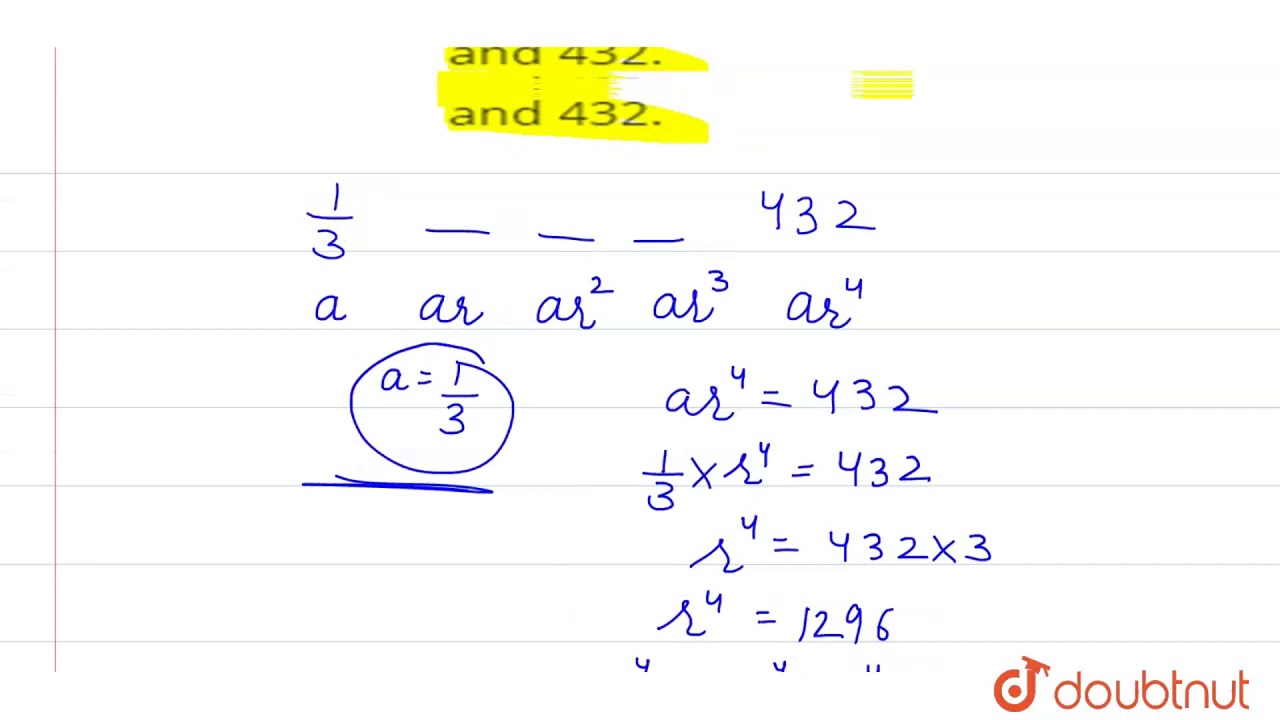 and 432.
and 432.
1/3 — — — 432
a ar ar² ar³ ar⁴
a = 1/3
ar⁴ = 432
1/3 × r⁴ = 432
r⁴ = 432 × 3
r⁴ = 1296
doubtnut